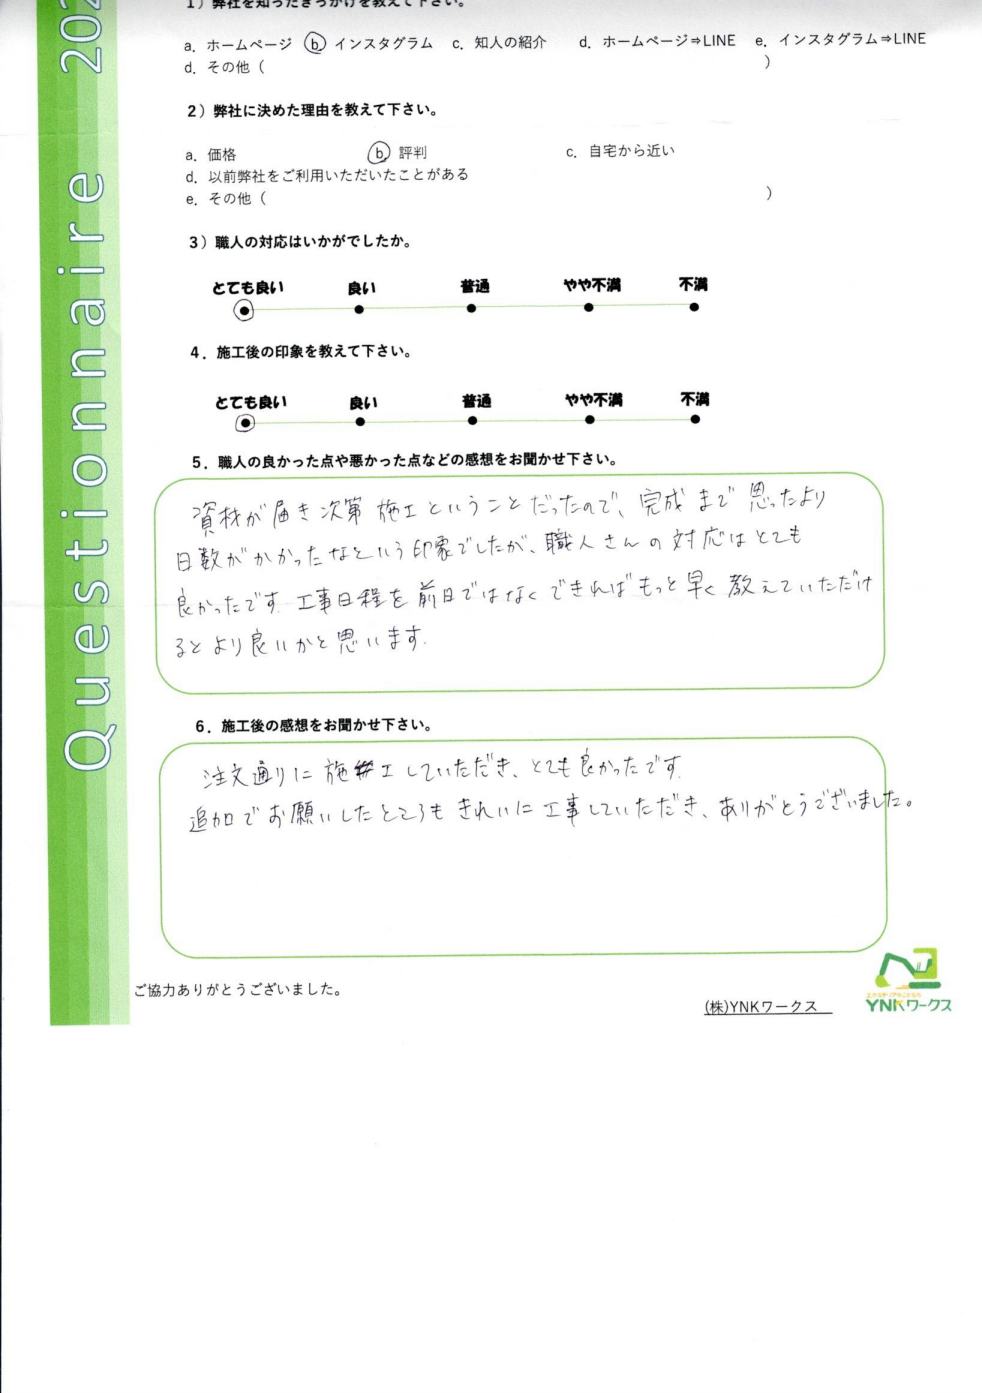 1）弊社を知ったきっかけを教えて下さい。
a. ホームページ b. インスタグラム c. 知人の紹介 d. ホームページ⇒LINE e. インスタグラム⇒LINE
d. その他（ ）
2）弊社に決めた理由を教えて下さい。
a. 価格 b. 評判 c. 自宅から近い
d. 以前弊社をご利用いただいたことがある
e. その他（ ）
3）職人の対応はいかがでしたか。
とても良い 良い 普通 やや不満 不満
4．施工後の印象を教えて下さい。
とても良い 良い 普通 やや不満 不満
5．職人の良かった点や悪かった点などの感想をお聞かせ下さい。
資材が届き次第施工ということだったので、完成まで思ったより
日数がかかったなという印象でしたが、職人さんの対応はとても
良かったです。工事日程を前日ではなくできればもっと早く教えていただけ
るとより良いかと思います。
6．施工後の感想をお聞かせ下さい。
注文通りに施工していただき、とても良かったです。
追加でお願いしたところもきれいに工事していただき、ありがとうございました。
ご協力ありがとうございました。
(株)YNKワークス
YNKワークス
Questionnaire 202